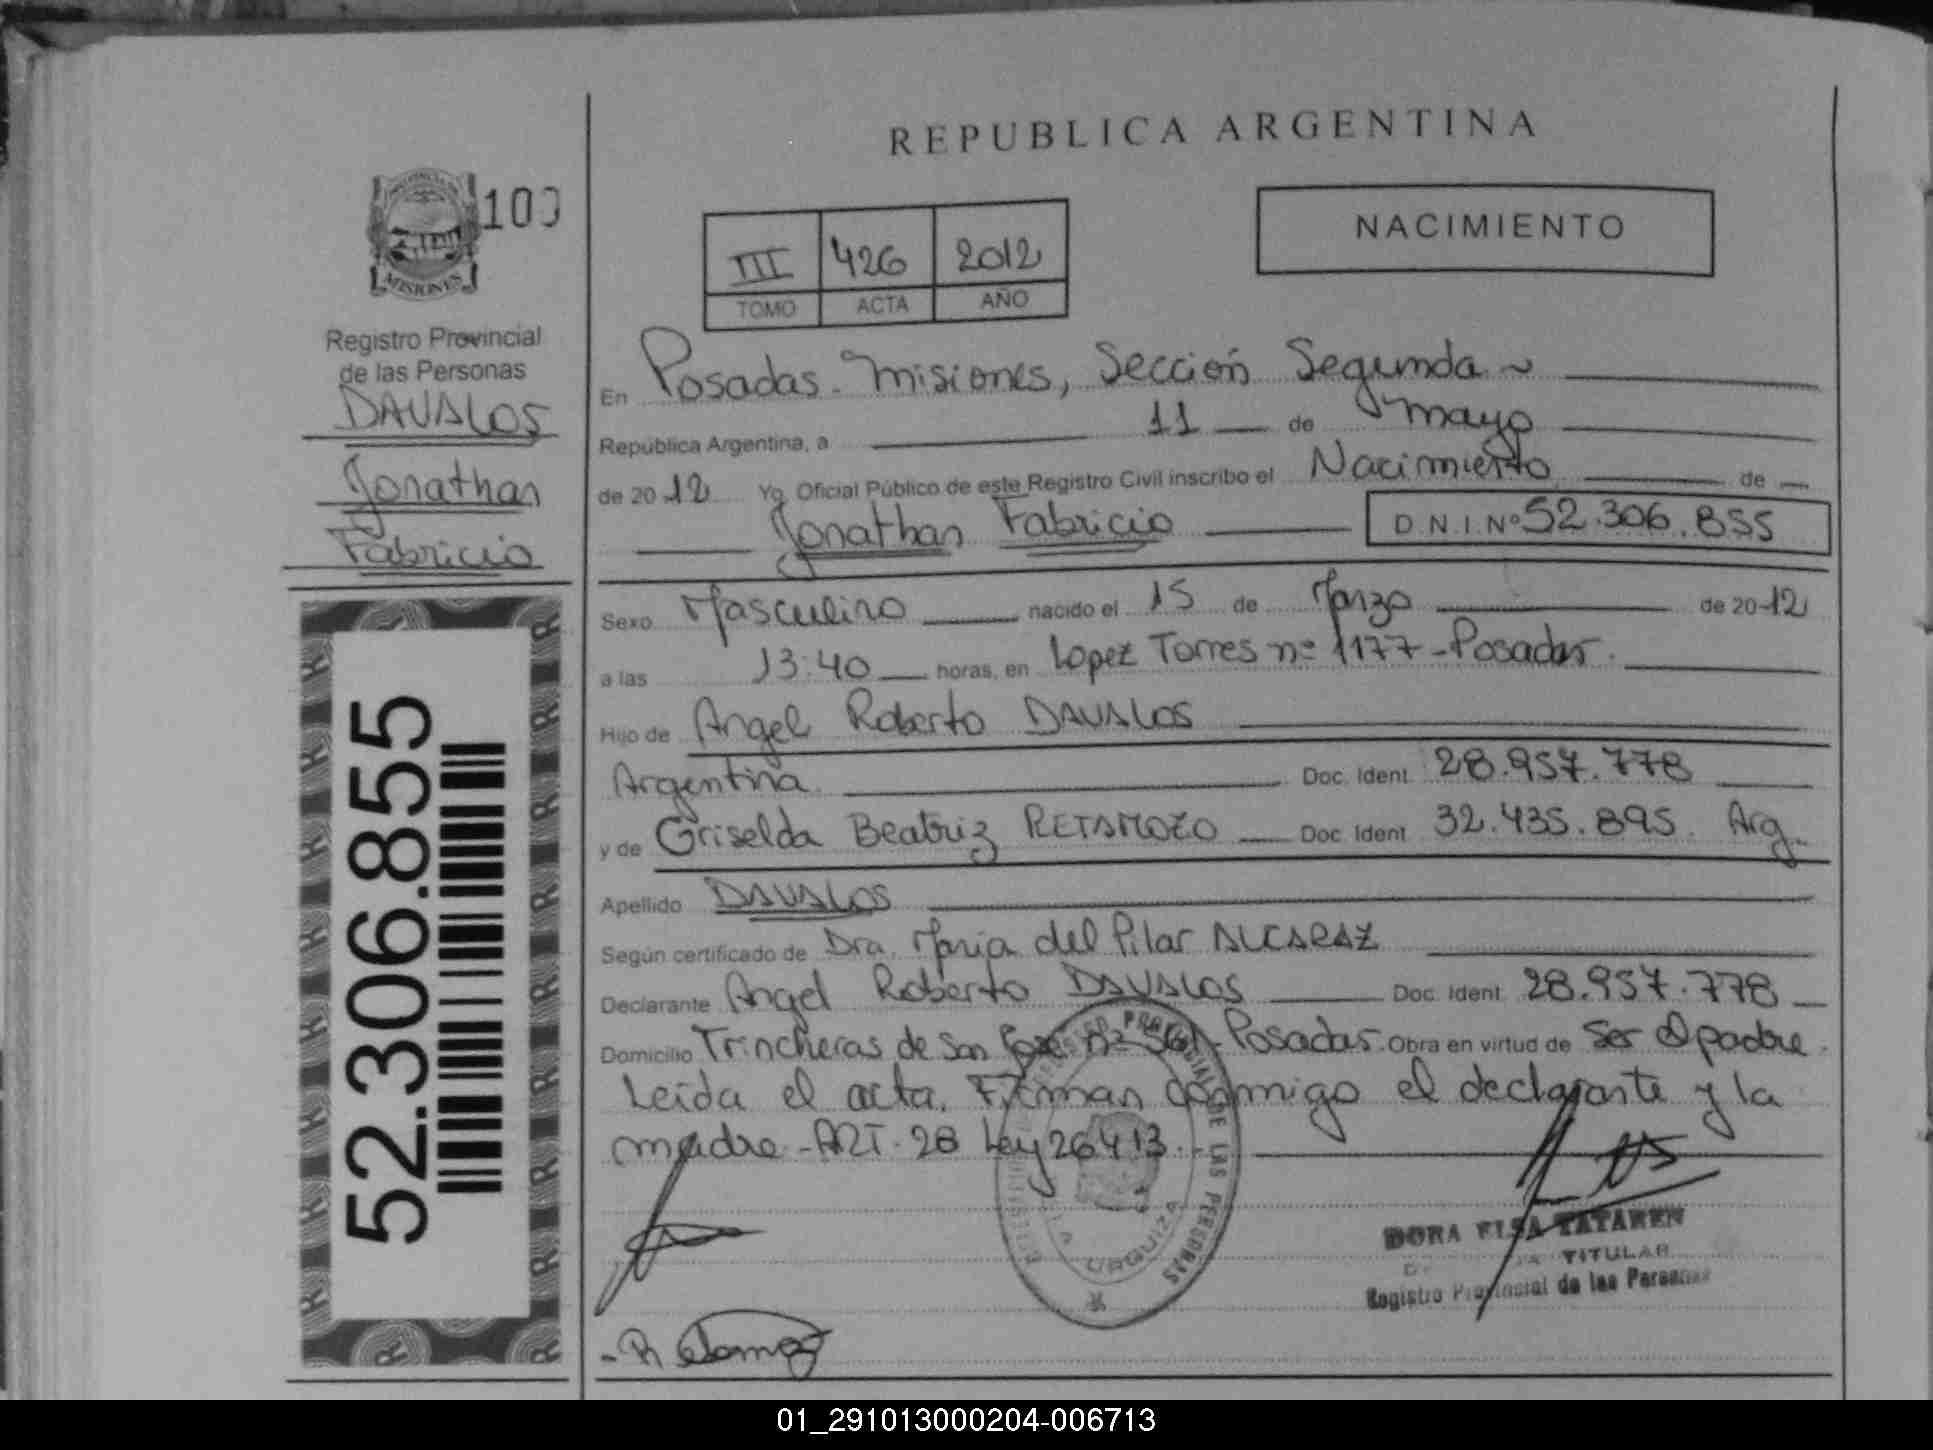 REPUBLICA ARGENTINA
NACIMIENTO
III 426 2012
TOMO ACTA AÑO
MISIONES
Registro Provincial
de las Personas
DAVALOS
Jonathan
Fabricio
52.306.855
En Posadas - Misiones, Sección Segunda
República Argentina, a 11 de mayo
de 2012 Yo, Oficial Público de este Registro Civil inscribo el Nacimiento de
Jonathan Fabricio D.N.I. Nº 52.306.855
Sexo Masculino nacido el 15 de Marzo de 2012
a las 13:40 horas, en Lopez Torres nº 1177 - Posadas.
Hijo de Angel Roberto DAVALOS
Argentina. Doc. Ident. 28.957.778
y de Griselda Beatriz RETAMOZO Doc. Ident. 32.435.895. Arg.
Apellido DAVALOS
Según certificado de Dra. Maria del Pilar ALCARAZ
Declarante Angel Roberto DAVALOS Doc. Ident. 28.957.778
Domicilio Trincheras de San José nº Posadas. Obra en virtud de Ser el padre.
Leída el acta. Firman conmigo el declarante y la
madre - ART. 28 Ley 26413.
PROVINCIAL DE LAS PERSONAS
URQUIZA
DORA ELSA TATAREN
TITULAR
Registro Provincial de las Personas
01_291013000204-006713